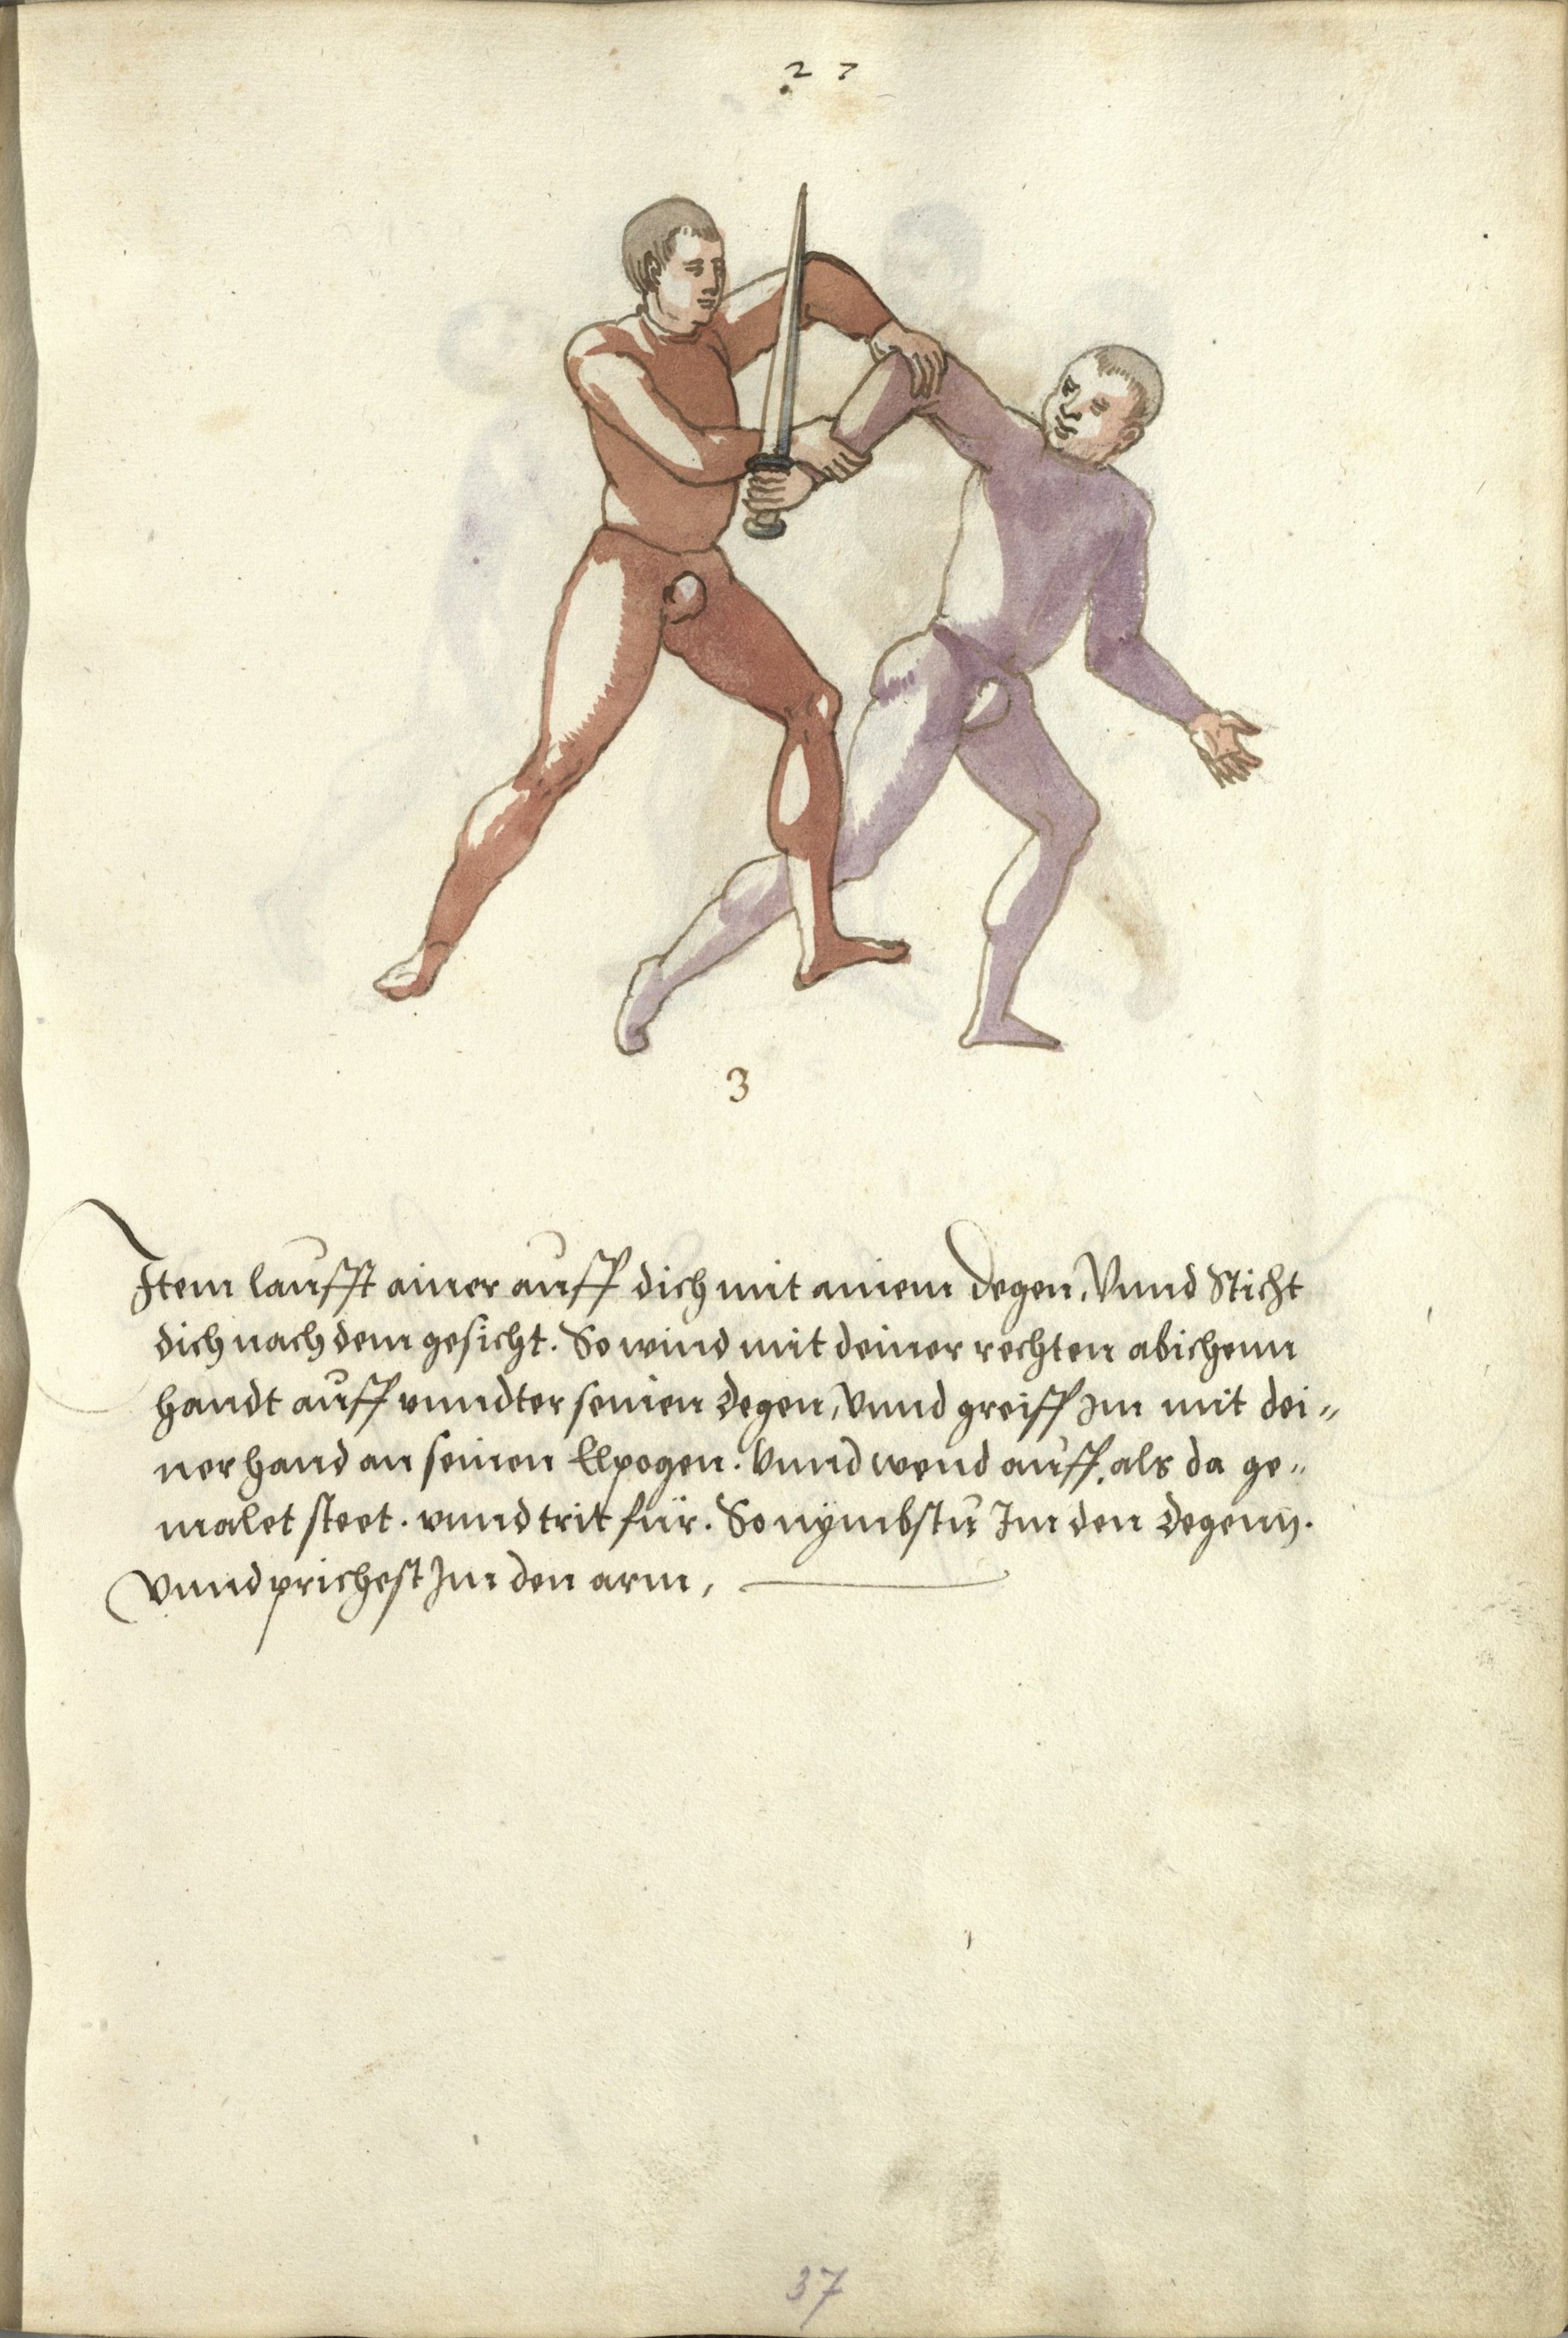 27
3
Item laufft ainer auff dich mit ainem degen, Vnnd Sticht
dich nach dem gesicht. So wind mit deiner rechten abichenn
handt auff vnndter seinen degen, Vnnd greiff im mit dei„
ner hand an seinen Elpogen. Vnnd wend auff, als da ge„
malet steet. vnnd trit für. So nymbstu Im den degenn.
Vnnd prichest Im den arm,
37